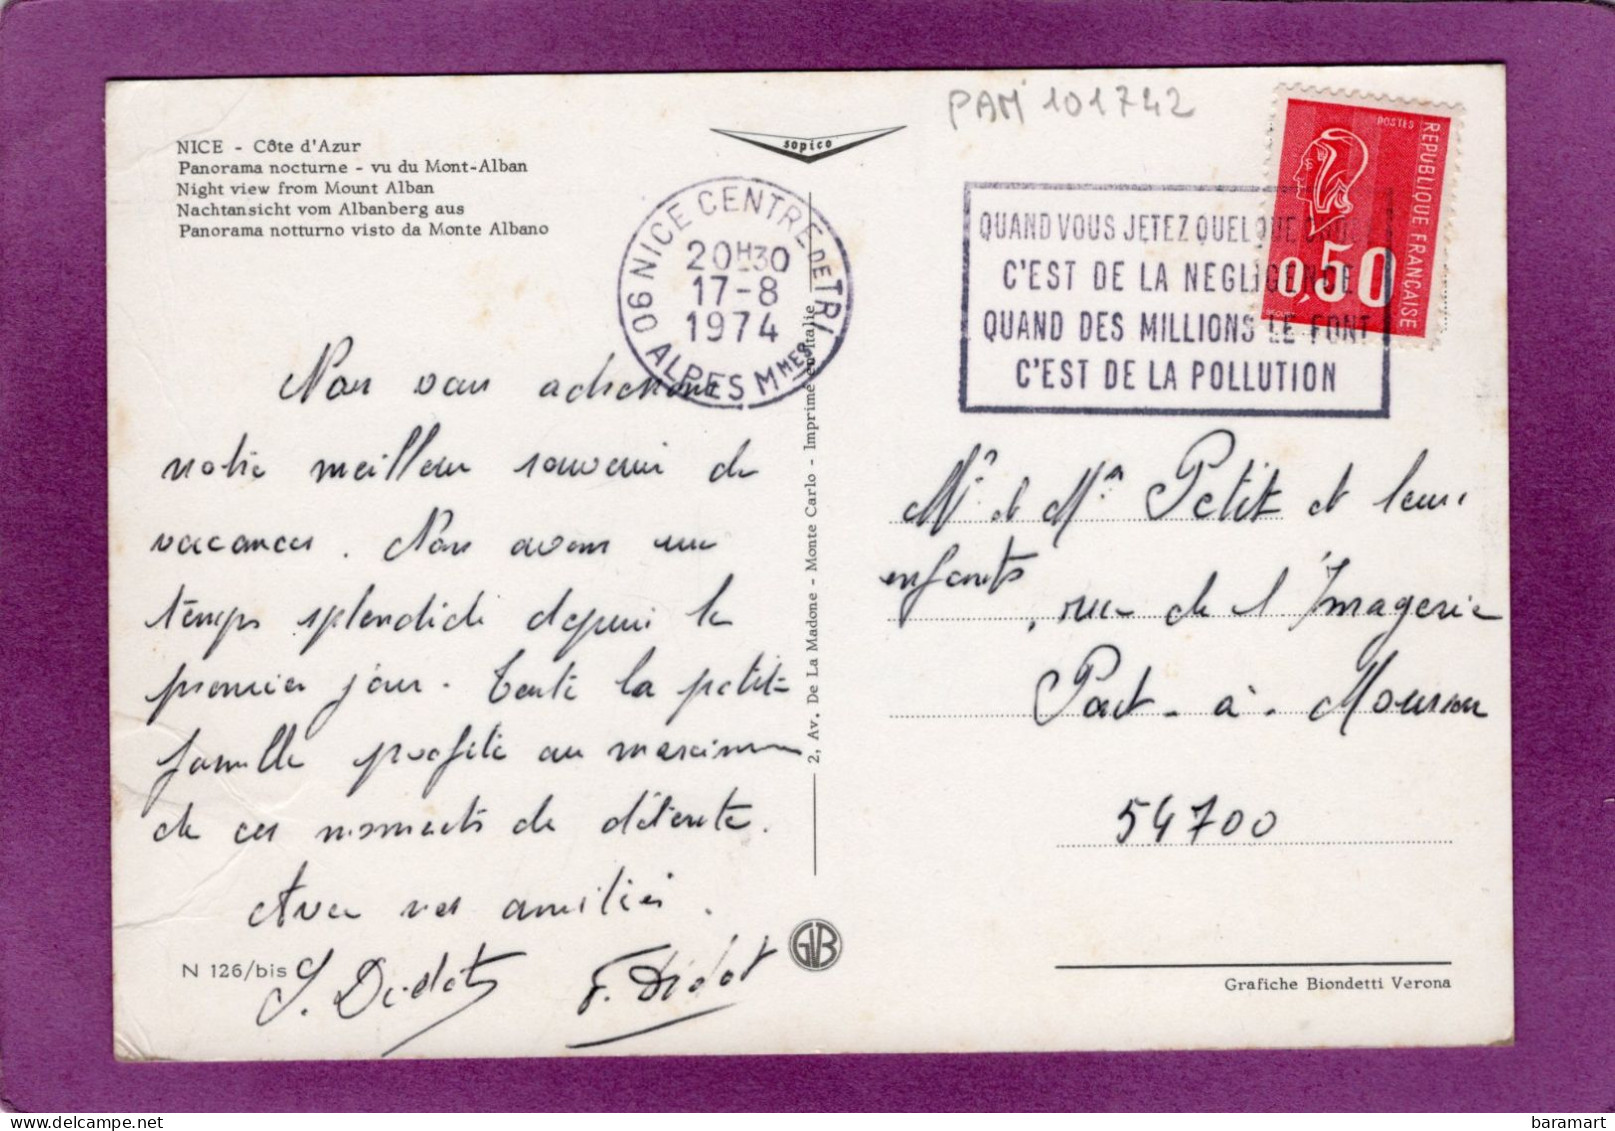 PAM 101742
NICE - Côte d'Azur
Panorama nocturne - vu du Mont-Alban
Night view from Mount Alban
Nachtansicht vom Albanberg aus
Panorama notturno visto da Monte Albano
sopico
06 NICE CENTRE DE TRI
20H30
17-8
1974
ALPES MMES
QUAND VOUS JETEZ QUELQUE CHOSE
C'EST DE LA NEGLIGENCE
QUAND DES MILLIONS LE FONT
C'EST DE LA POLLUTION
POSTES
REPUBLIQUE FRANCAISE
0,50
Nous vous adressons
notre meilleur souvenir de
vacances. Nous avons un
temps splendide depuis le
premier jour. Toute la petite
famille profite au maximum
de ces moments de détente.
Avec nos amitiés.
S. Didot F. Didot
2, Av. De La Madone - Monte Carlo - Imprimé en Italie
Mr et Mme Petit et leurs
enfants
, rue de l'Imagerie
Pont-à-Mousson
54700
N 126/bis
GVB
Grafiche Biondetti Verona
baramart